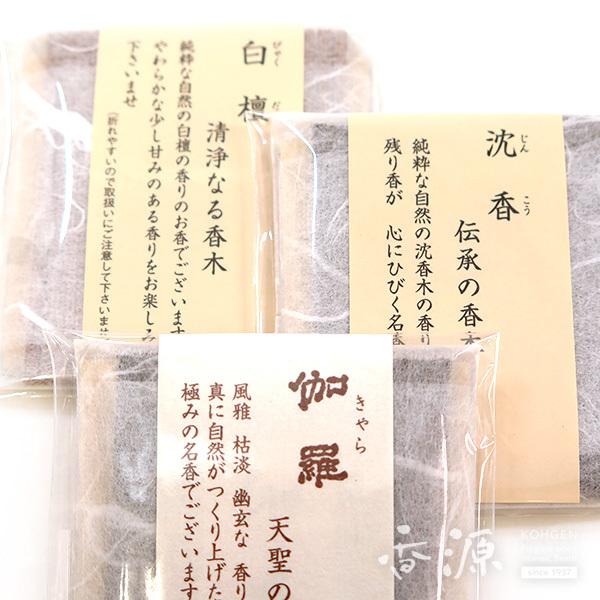 びゃく だ
白檀
清浄なる香木
純粋な自然の白檀の香りのお香でございます
やわらかな少し甘みのある香りをお楽しみ
下さいませ
(折れやすいので取扱いにご注意して下さいませ
じん こう
沈香
伝承の香木
純粋な自然の沈香木の香り
残り香が 心にひびく名香
きゃら
伽羅
天聖の
風雅 枯淡 幽玄な 香り
真に自然がつくり上げた
極みの名香でございます
香源
KOHGEN
since 1937